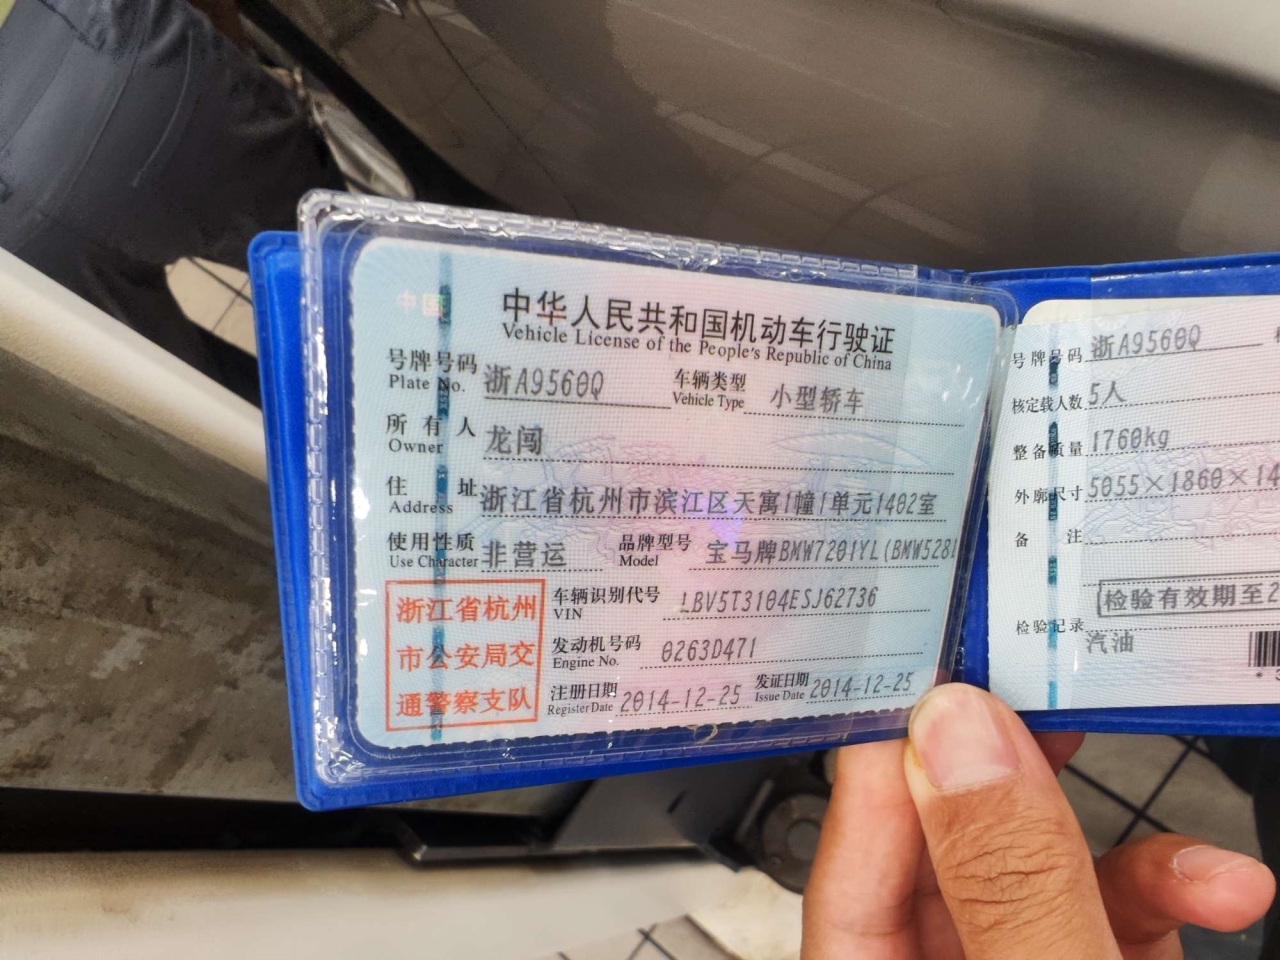 中国
中华人民共和国机动车行驶证
Vehicle License of the People's Republic of China
号牌号码 浙A9560Q 车辆类型 小型轿车
Plate No. Vehicle Type
所有人 龙闯
Owner
住址 浙江省杭州市滨江区天寓1幢1单元1402室
Address
使用性质 非营运 品牌型号 宝马牌BMW7201YL(BMW528l
Use Character Model
浙江省杭州
市公安局交
通警察支队
车辆识别代号 LBV5T3104ESJ62736
VIN
发动机号码 0263D471
Engine No.
注册日期 2014-12-25 发证日期 2014-12-25
Register Date Issue Date
号牌号码 浙A9560Q
核定载人数 5人
整备质量 1760kg
外廓尺寸 5055×1860×14
备注
检验有效期至2
检验记录
汽油